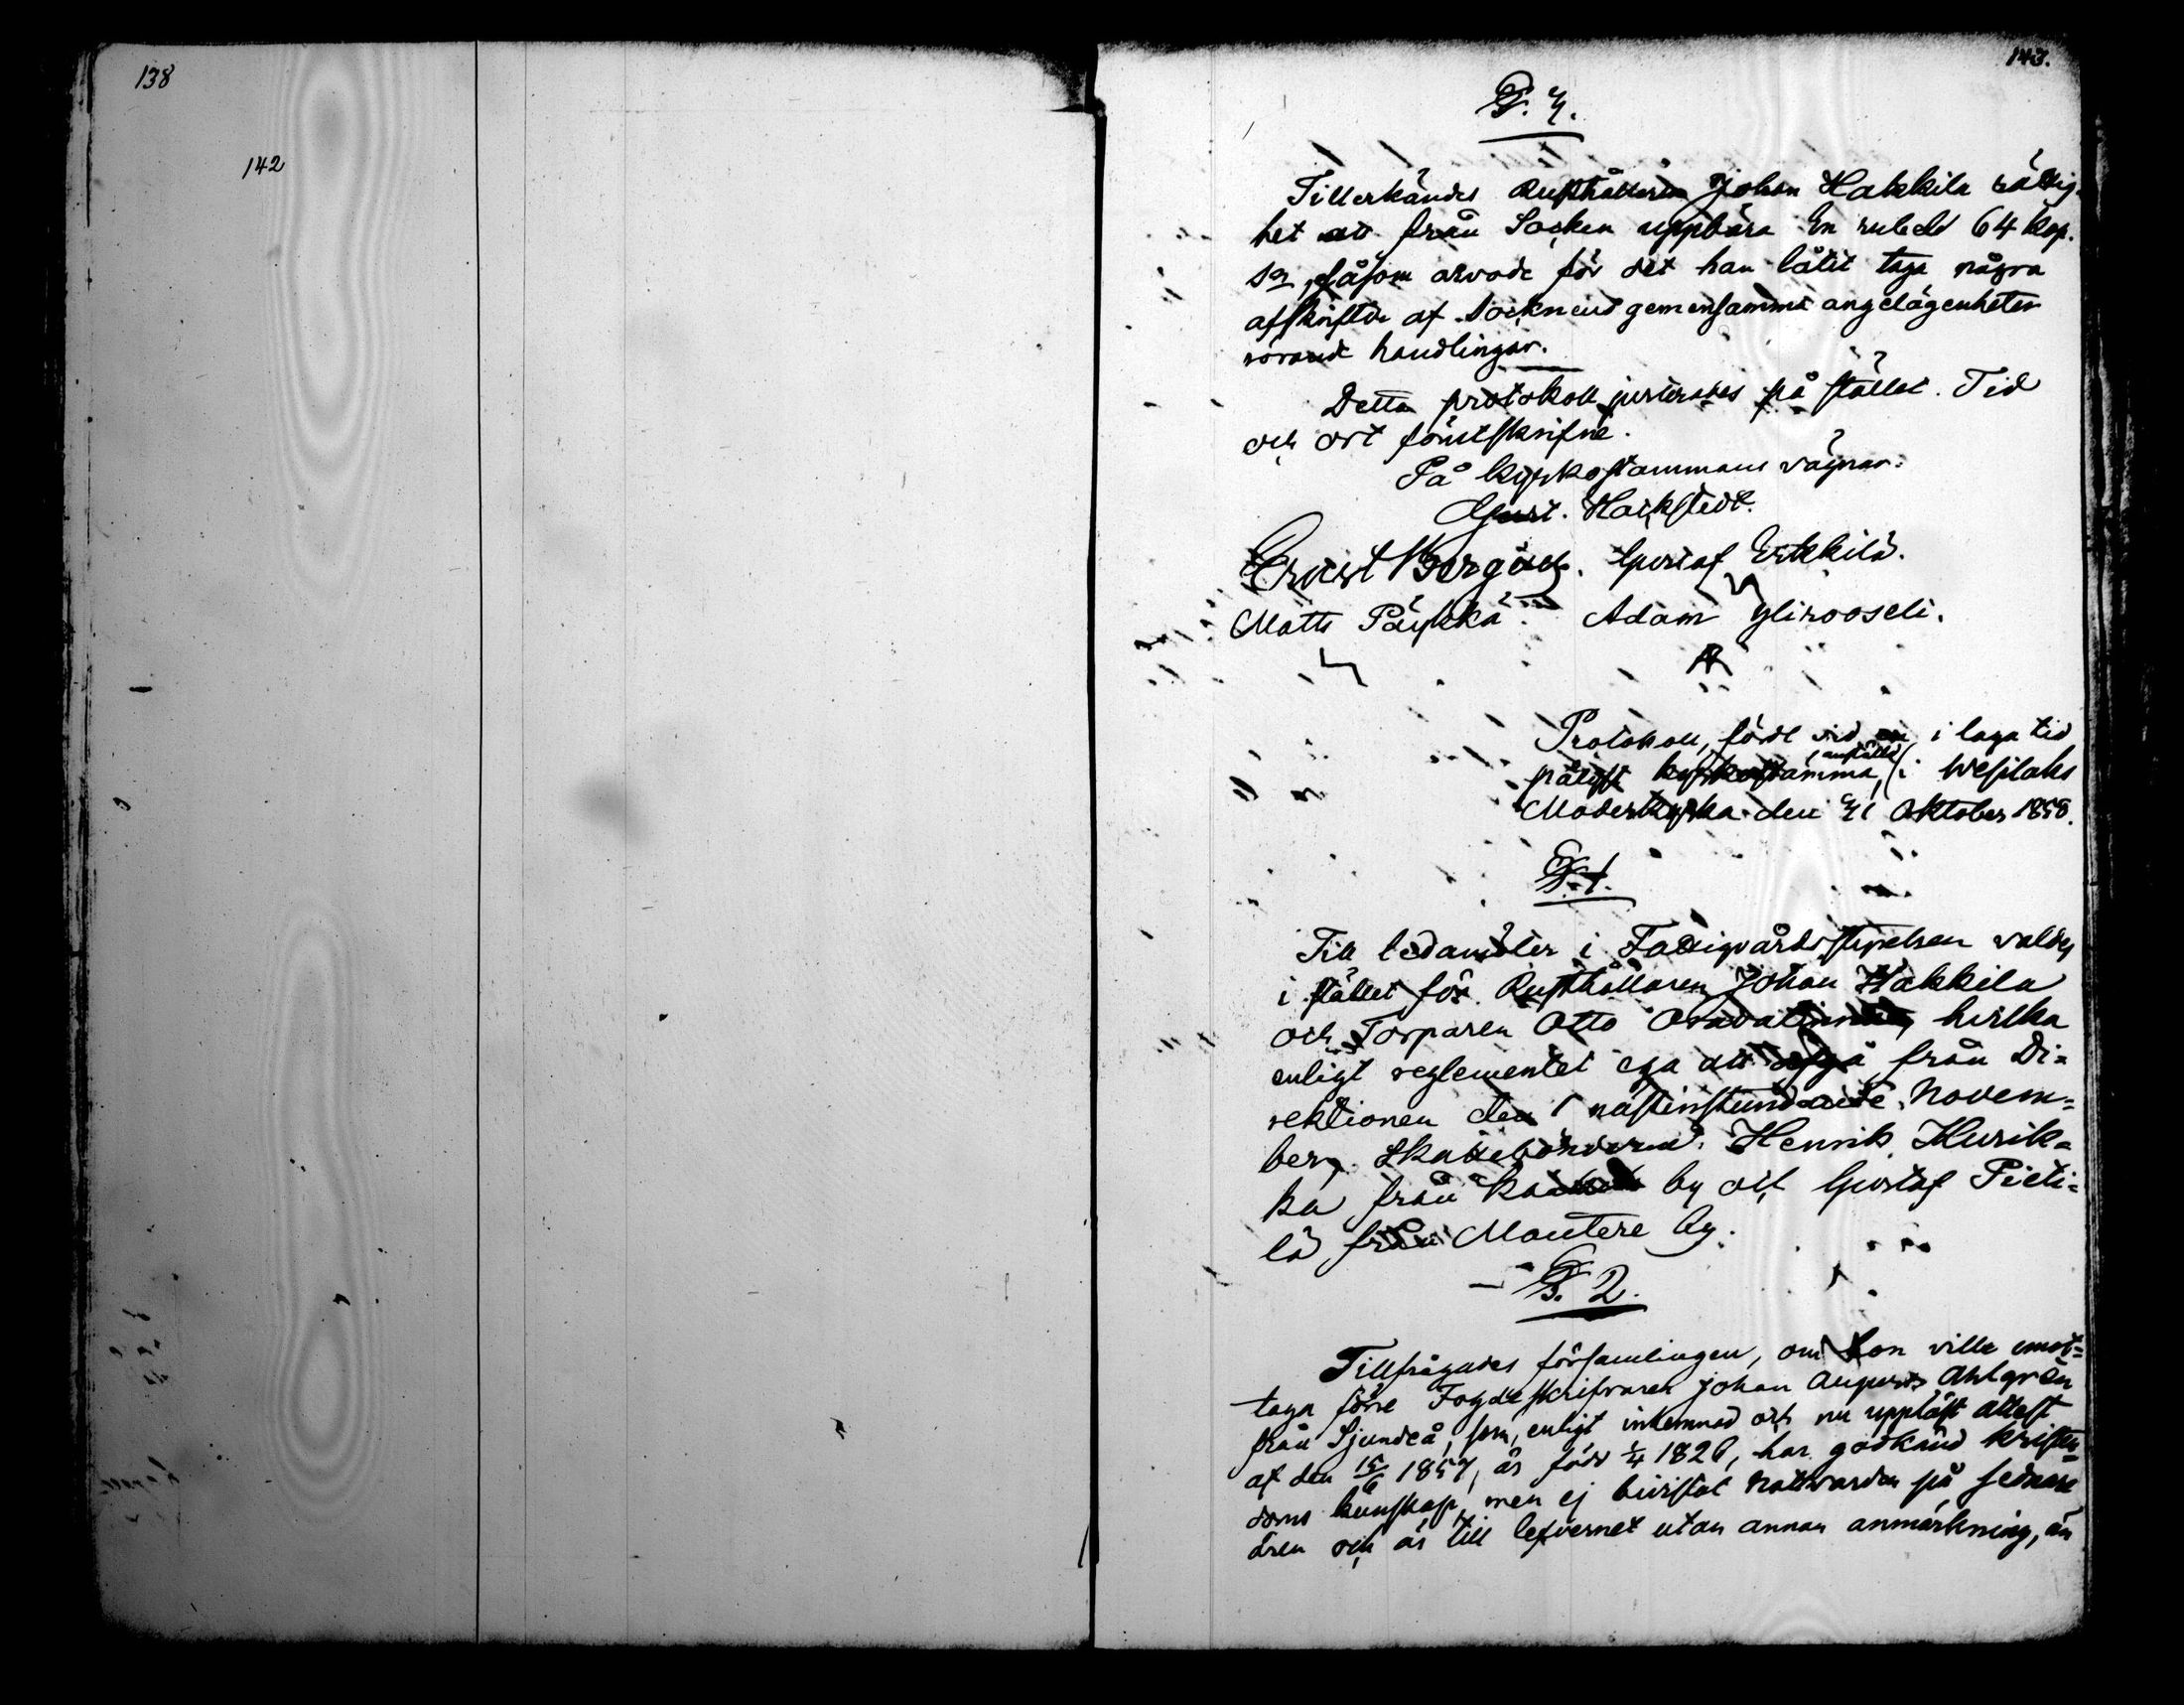 138
142
143.
§. 7.
Tillerkändes Rusthållaren Johan Hakkila rättig-
het att från Socken uppbära En rubel 64 kop.
Sr, såsom arvode för det han låtit taga några
afskrifter af Socknens gemensamma angelägenheter
rörande handlingar.
Detta protokoll justerades på stället. Tid
och ort förutskrifne.
På kyrkostammans vägnar:
Gust. Hackstedt.
Ernst Bergroth. Gustaf Erkkilä.
Matts Päykkä. Adam Ylirooseli.
Protokoll, fördt vid en i laga tid
pålyst kyrkostämma, anställd i Wesilaks
Moderkyrka den 31 Oktober 1858.
§. 1.
Till ledamöter i Fattigvårdsstyrelsen valdes
i stället för Rusthållaren Johan Hakkila
och Torparen Otto hvilka
enligt reglementet ega att afgå från Di=
rektionen den 1 nästinstundande Novem=
ber, Skattebönderne Henrik Kurik=
ka från by och Gustaf Pieti=
lä från Mantere by.
§. 2.
Tillfrågades församlingen, om hon ville emot=
taga förre Fogdeskrifvaren Johan August Ahlgrén
från Sjundeå, som, enligt inlemnad och nu uppläst attest
af den 15/6 1857, är född 1/4 1826, har godkänd kristen=
doms kunskap, men ej bivistat nattvarden på sednare
åren och är till lefvernet utan annan anmärkning, än